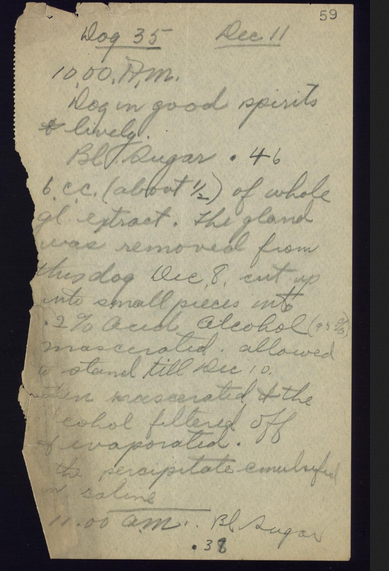 59
Dog 35 Dec 11
10.00. A.M.
Dog in good spirits
& lively.
Bl. Sugar .46
6 c.c. (about ½) of whole
gl. extract. The gland
was removed from
this dog Dec. 8. cut up
into small pieces into
.2% Acid, Alcohol (95%)
mascerated. allowed
to stand till Dec 10.
then mascerated & the
alcohol filtered off
& evaporated.
the percipitate emulsified
in saline
11.00 a.m. Bl Sugar
.38